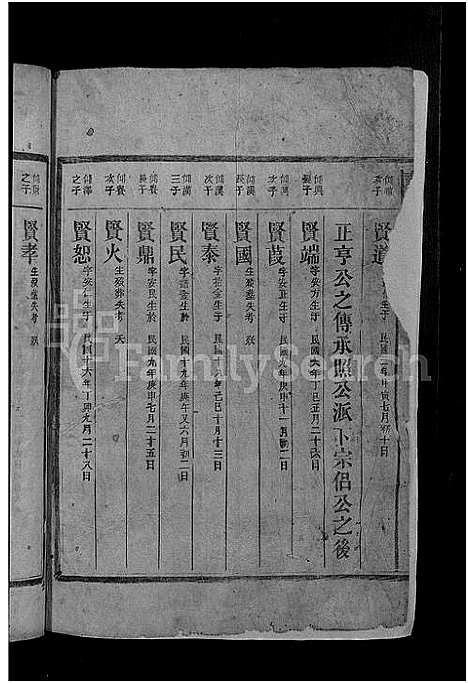 賢道 生于民國三年甲寅七月初十日
正亨公之傳承照公派下宗侶公之後
長子 賢端 字安方生于民國六年丁巳五月二十六日
次子 賢葭 字安 生于民國九年庚申十一月初二日
長子 賢國 生殁葬失考
次子 賢泰 字安 生于民國十八年己巳十月十三日
三子 賢民 生於民國十九年庚午又六月初二日
長子 賢鼎 字安民生於民國九年庚申七月二十五日
次子 賢火 生殁葬失考 夭
之子 賢恕 字安仁生于民國十六年丁卯九月二十八日
之子 賢孝 生殁葬失考
FamilySearch